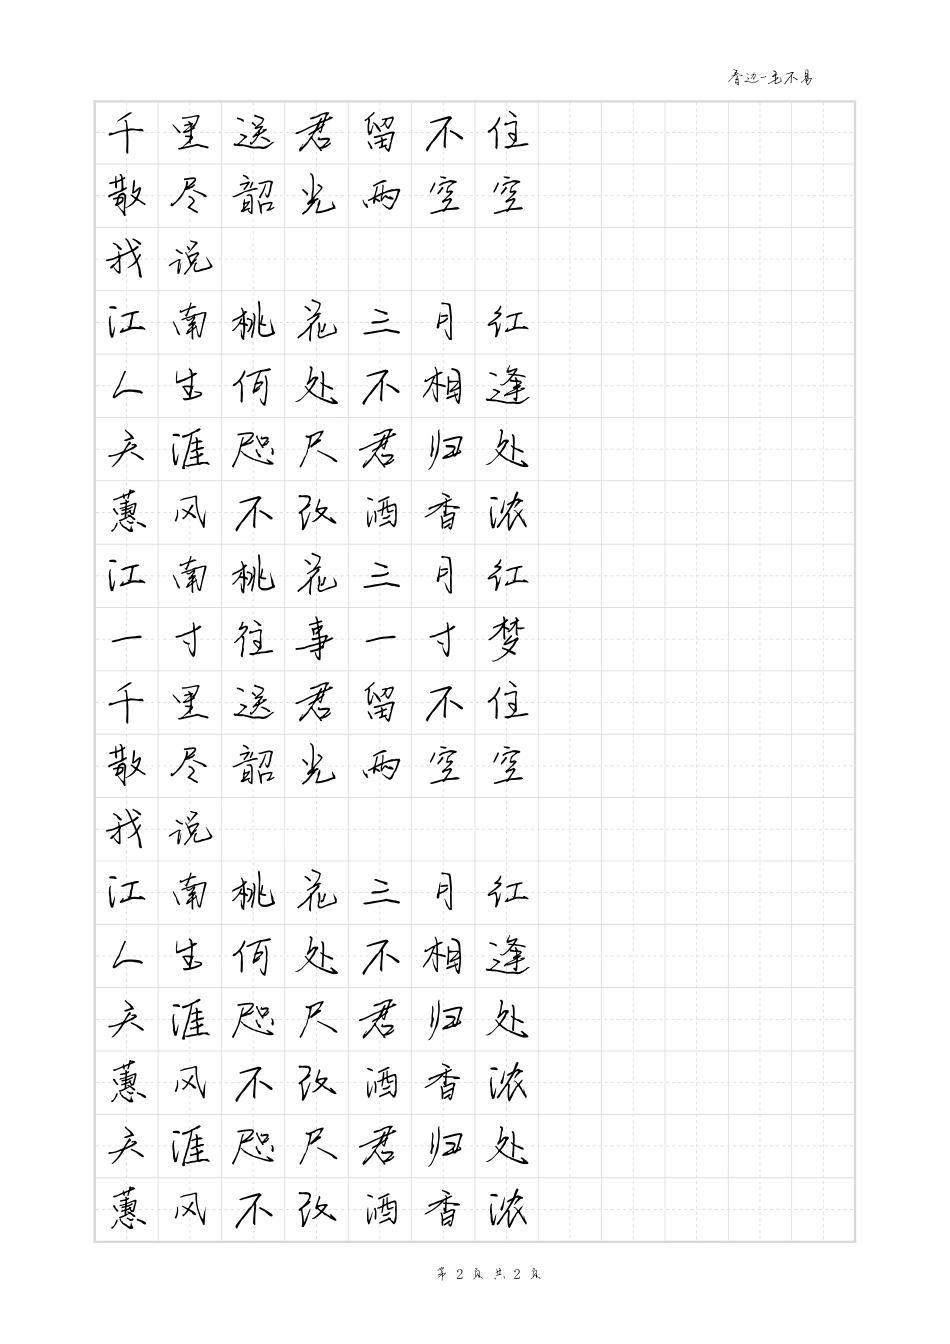 边-毛不易
千里送君留不住
散尽韶光两空空
我说
江南桃花三月红
人生何处不相逢
天涯咫尺君归处
蕙风不改酒香浓
江南桃花三月红
一寸往事一寸梦
千里送君留不住
散尽韶光两空空
我说
江南桃花三月红
人生何处不相逢
天涯咫尺君归处
蕙风不改酒香浓
天涯咫尺君归处
蕙风不改酒香浓
第 2 页 共 2 页